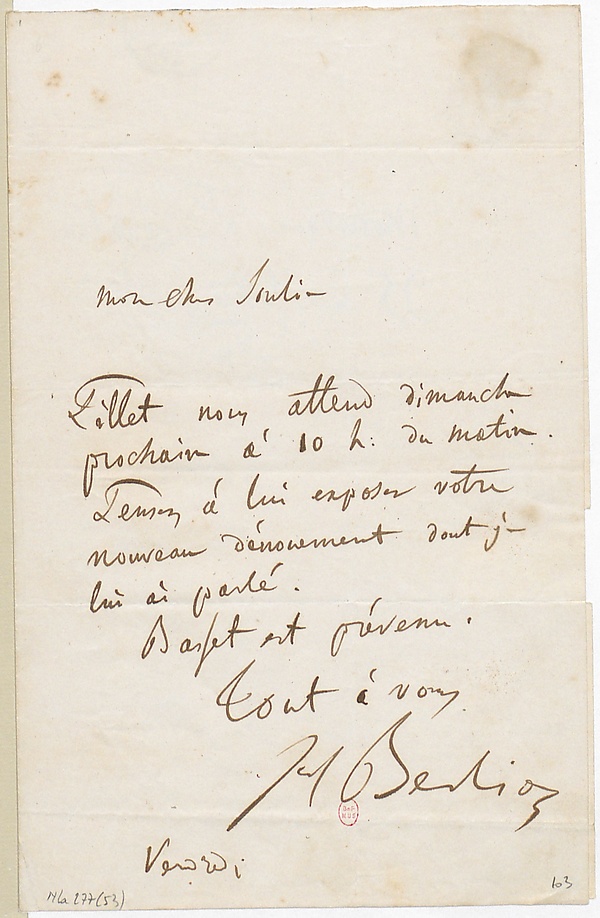 mon cher Soulié
Pillet nous attend dimanche
prochain à 10 h: du matin.
Pensez à lui exposer votre
nouveau dénouement dont je
lui ai parlé.
Basset est prévenu.
Tout à vous
H Berlioz
Vendredi
NLa 277 (53)
103